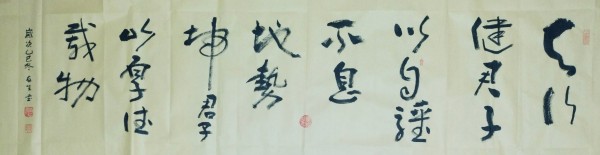 天行
健君子
以自彊
不息
地勢
坤君子
以厚德
載物
歲次